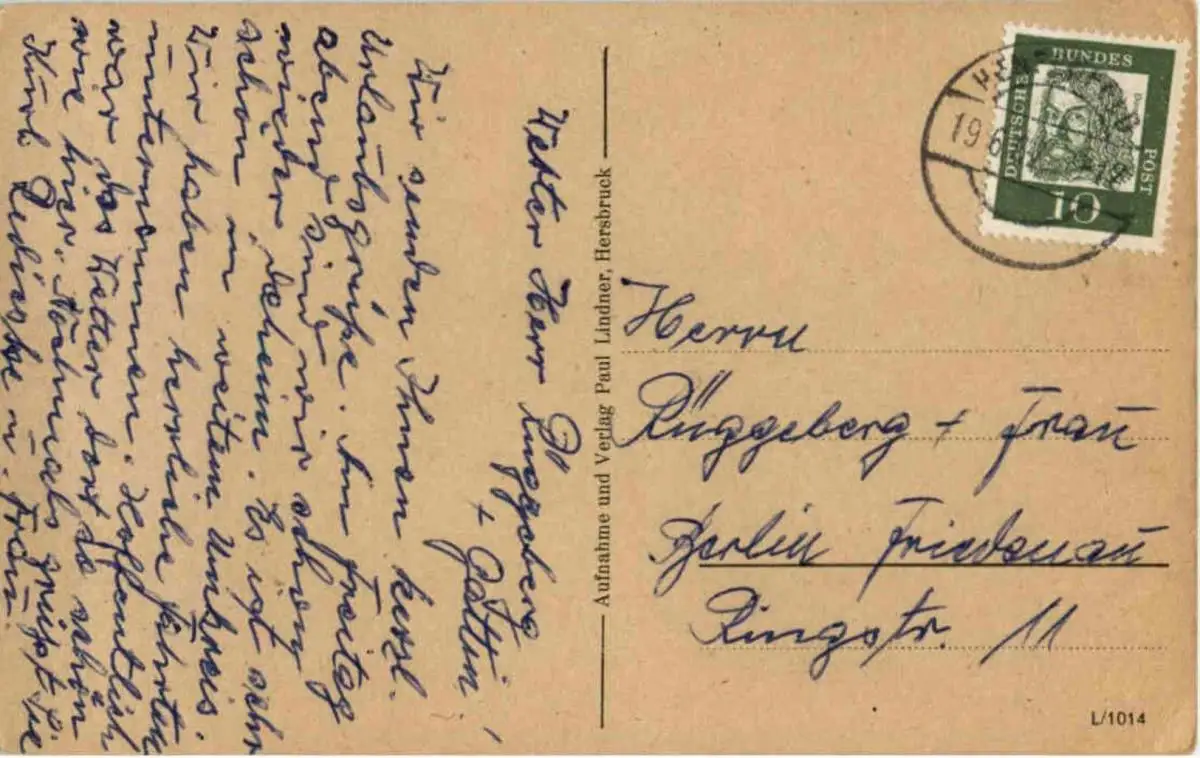 Werter Herr Rüggeberg
+ Gattin!
Wir senden Ihnen herzl.
Urlaubsgrüße. Am Freitag
abend sind wir schon
wieder daheim. Es ist sehr
schön im weitem Umkreis.
Wir haben herrliche Fahrten
unternommen. Hoffentlich
war das Wetter dort so schön
wie hier. Nochmals grüßt Sie
Kurt u. Frau.
Aufnahme und Verlag Paul Lindner, Hersbruck
DEUTSCHE BUNDES POST
10
19.6
Herrn
Rüggeberg + Frau
Berlin Friedenau
Ringstr. 11
L/1014